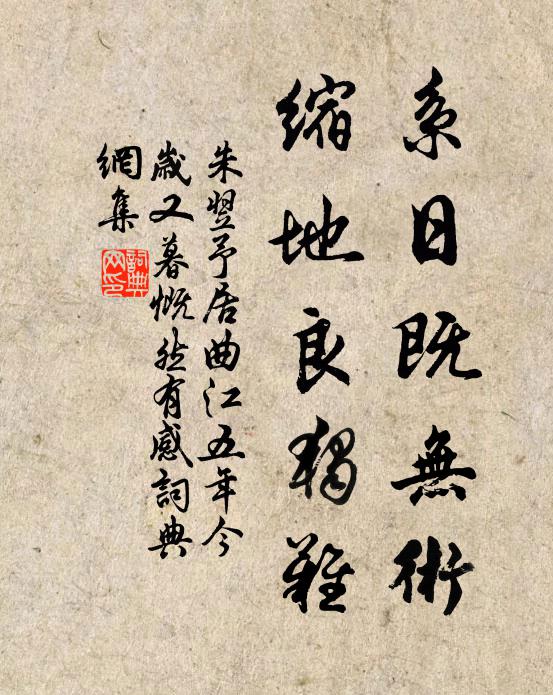 系日既無術
縮地良獨難
朱翌予居曲江五年今
歲又暮慨然有感詞典
網集
詞典網印